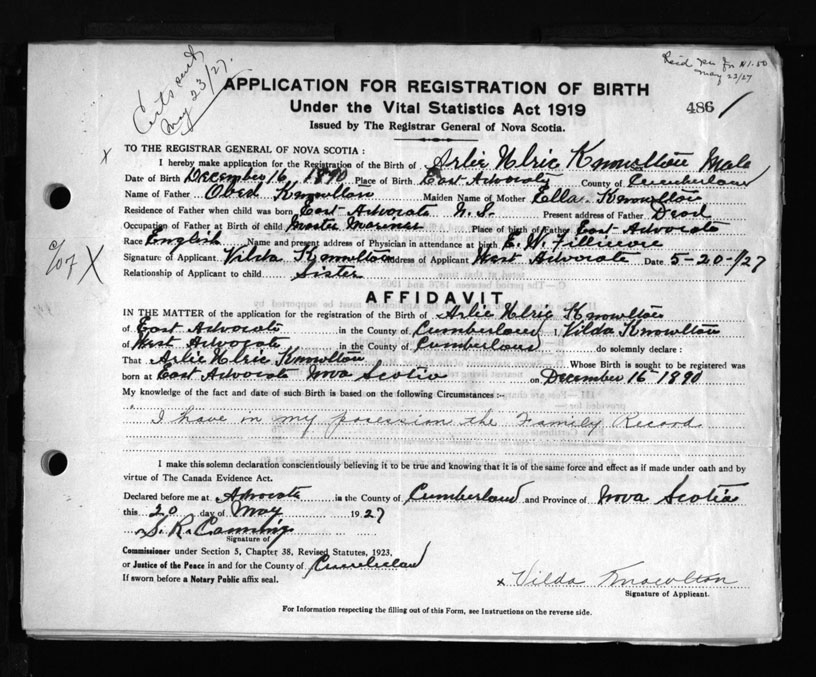 Certs sent
May 23/27.
May 23/27
APPLICATION FOR REGISTRATION OF BIRTH
Under the Vital Statistics Act 1919
486
Issued by The Registrar General of Nova Scotia.
TO THE REGISTRAR GENERAL OF NOVA SCOTIA :
I hereby make application for the Registration of the Birth of Arlie Ulric Knowlton Male
Date of Birth December 16, 1890 Place of Birth East Advocate County of Cumberland
Name of Father Obed Knowlton Maiden Name of Mother Ella Knowlton
Residence of Father when child was born East Advocate N.S. Present address of Father Dead
Occupation of Father at Birth of child Master Mariner Place of birth of Father East Advocate
Race English Name and present address of Physician in attendance at birth E. W. Fillmore
Signature of Applicant Vilda Knowlton Address of Applicant West Advocate Date 5-20-/27
Relationship of Applicant to child Sister
AFFIDAVIT
IN THE MATTER of the application for the registration of the Birth of Arlie Ulric Knowlton
of East Advocate in the County of Cumberland I, Vilda Knowlton
of West Advocate in the County of Cumberland do solemnly declare :
That Arlie Ulric Knowlton Whose Birth is sought to be registered was
born at East Advocate Nova Scotia on December 16 1890
My knowledge of the fact and date of such Birth is based on the following Circumstances :-
I have in my posession the Family Record
I make this solemn declaration conscientiously believing it to be true and knowing that it is of the same force and effect as if made under oath and by
virtue of The Canada Evidence Act.
Declared before me at Advocate in the County of Cumberland and Province of Nova Scotia
this 20 day of May 1927
S. R. Canning
Signature of
Commissioner under Section 5, Chapter 38, Revised Statutes, 1923,
or Justice of the Peace in and for the County of Cumberland
If sworn before a Notary Public affix seal.
x Vilda Knowlton
Signature of Applicant.
For Information respecting the filling out of this Form, see Instructions on the reverse side.